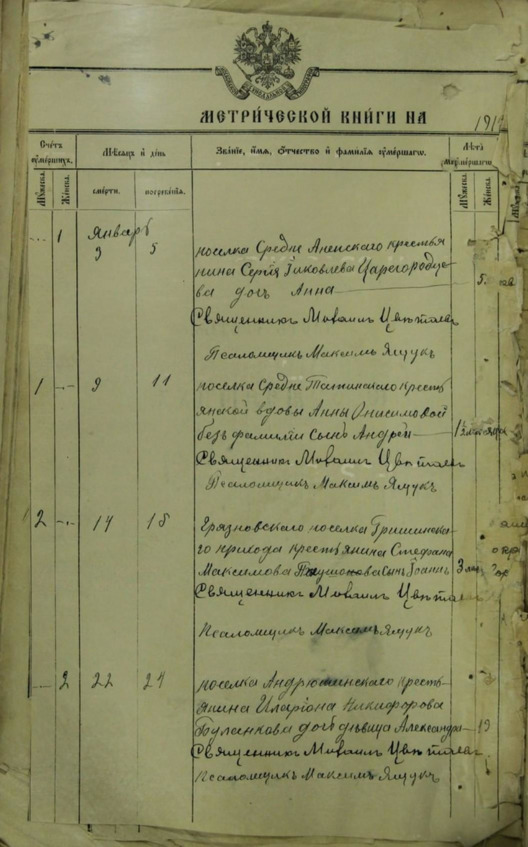 МЕТРИ́ЧЕСКОЙ КНИ́ГИ НА 191
Счетъ умершихъ.
Мѣсяцъ и день
Званіе, имя, отчество и фамилія умершаго.
Лѣта умершаго.
Мужеска.
Женска.
смерти.
погребенія.
Мужеска.
Женска.
Январь
1 3 5 поселка Средне Аненскаго крестья
нина Сергія Іаковлева Царегородце
ва дочь Анна 5.
Священникъ Михаилъ Цвѣтаевъ
Псаломщикъ Максимъ Ящукъ
1 9 11 поселка Средне крестъ
янской вдовы Анны Онисимовой
безъ фамиліи сынъ Андрей 1
Священникъ Михаилъ Цвѣтаевъ
Псаломщикъ Максимъ Ящукъ
2 14 15 Грязновскаго поселка Гришинска
го прихода крестьянина Стефана
Максимова сынъ Іоаннъ 3
Священникъ Михаилъ Цвѣтаевъ
Псаломщикъ Максимъ Ящукъ
2 22 24 поселка Андрюшинскаго кресть
янина Иларіона Никифорова
Буланкова дочь дѣвица Александра 19
Священникъ Михаилъ Цвѣтаевъ
Псаломщикъ Максимъ Ящукъ